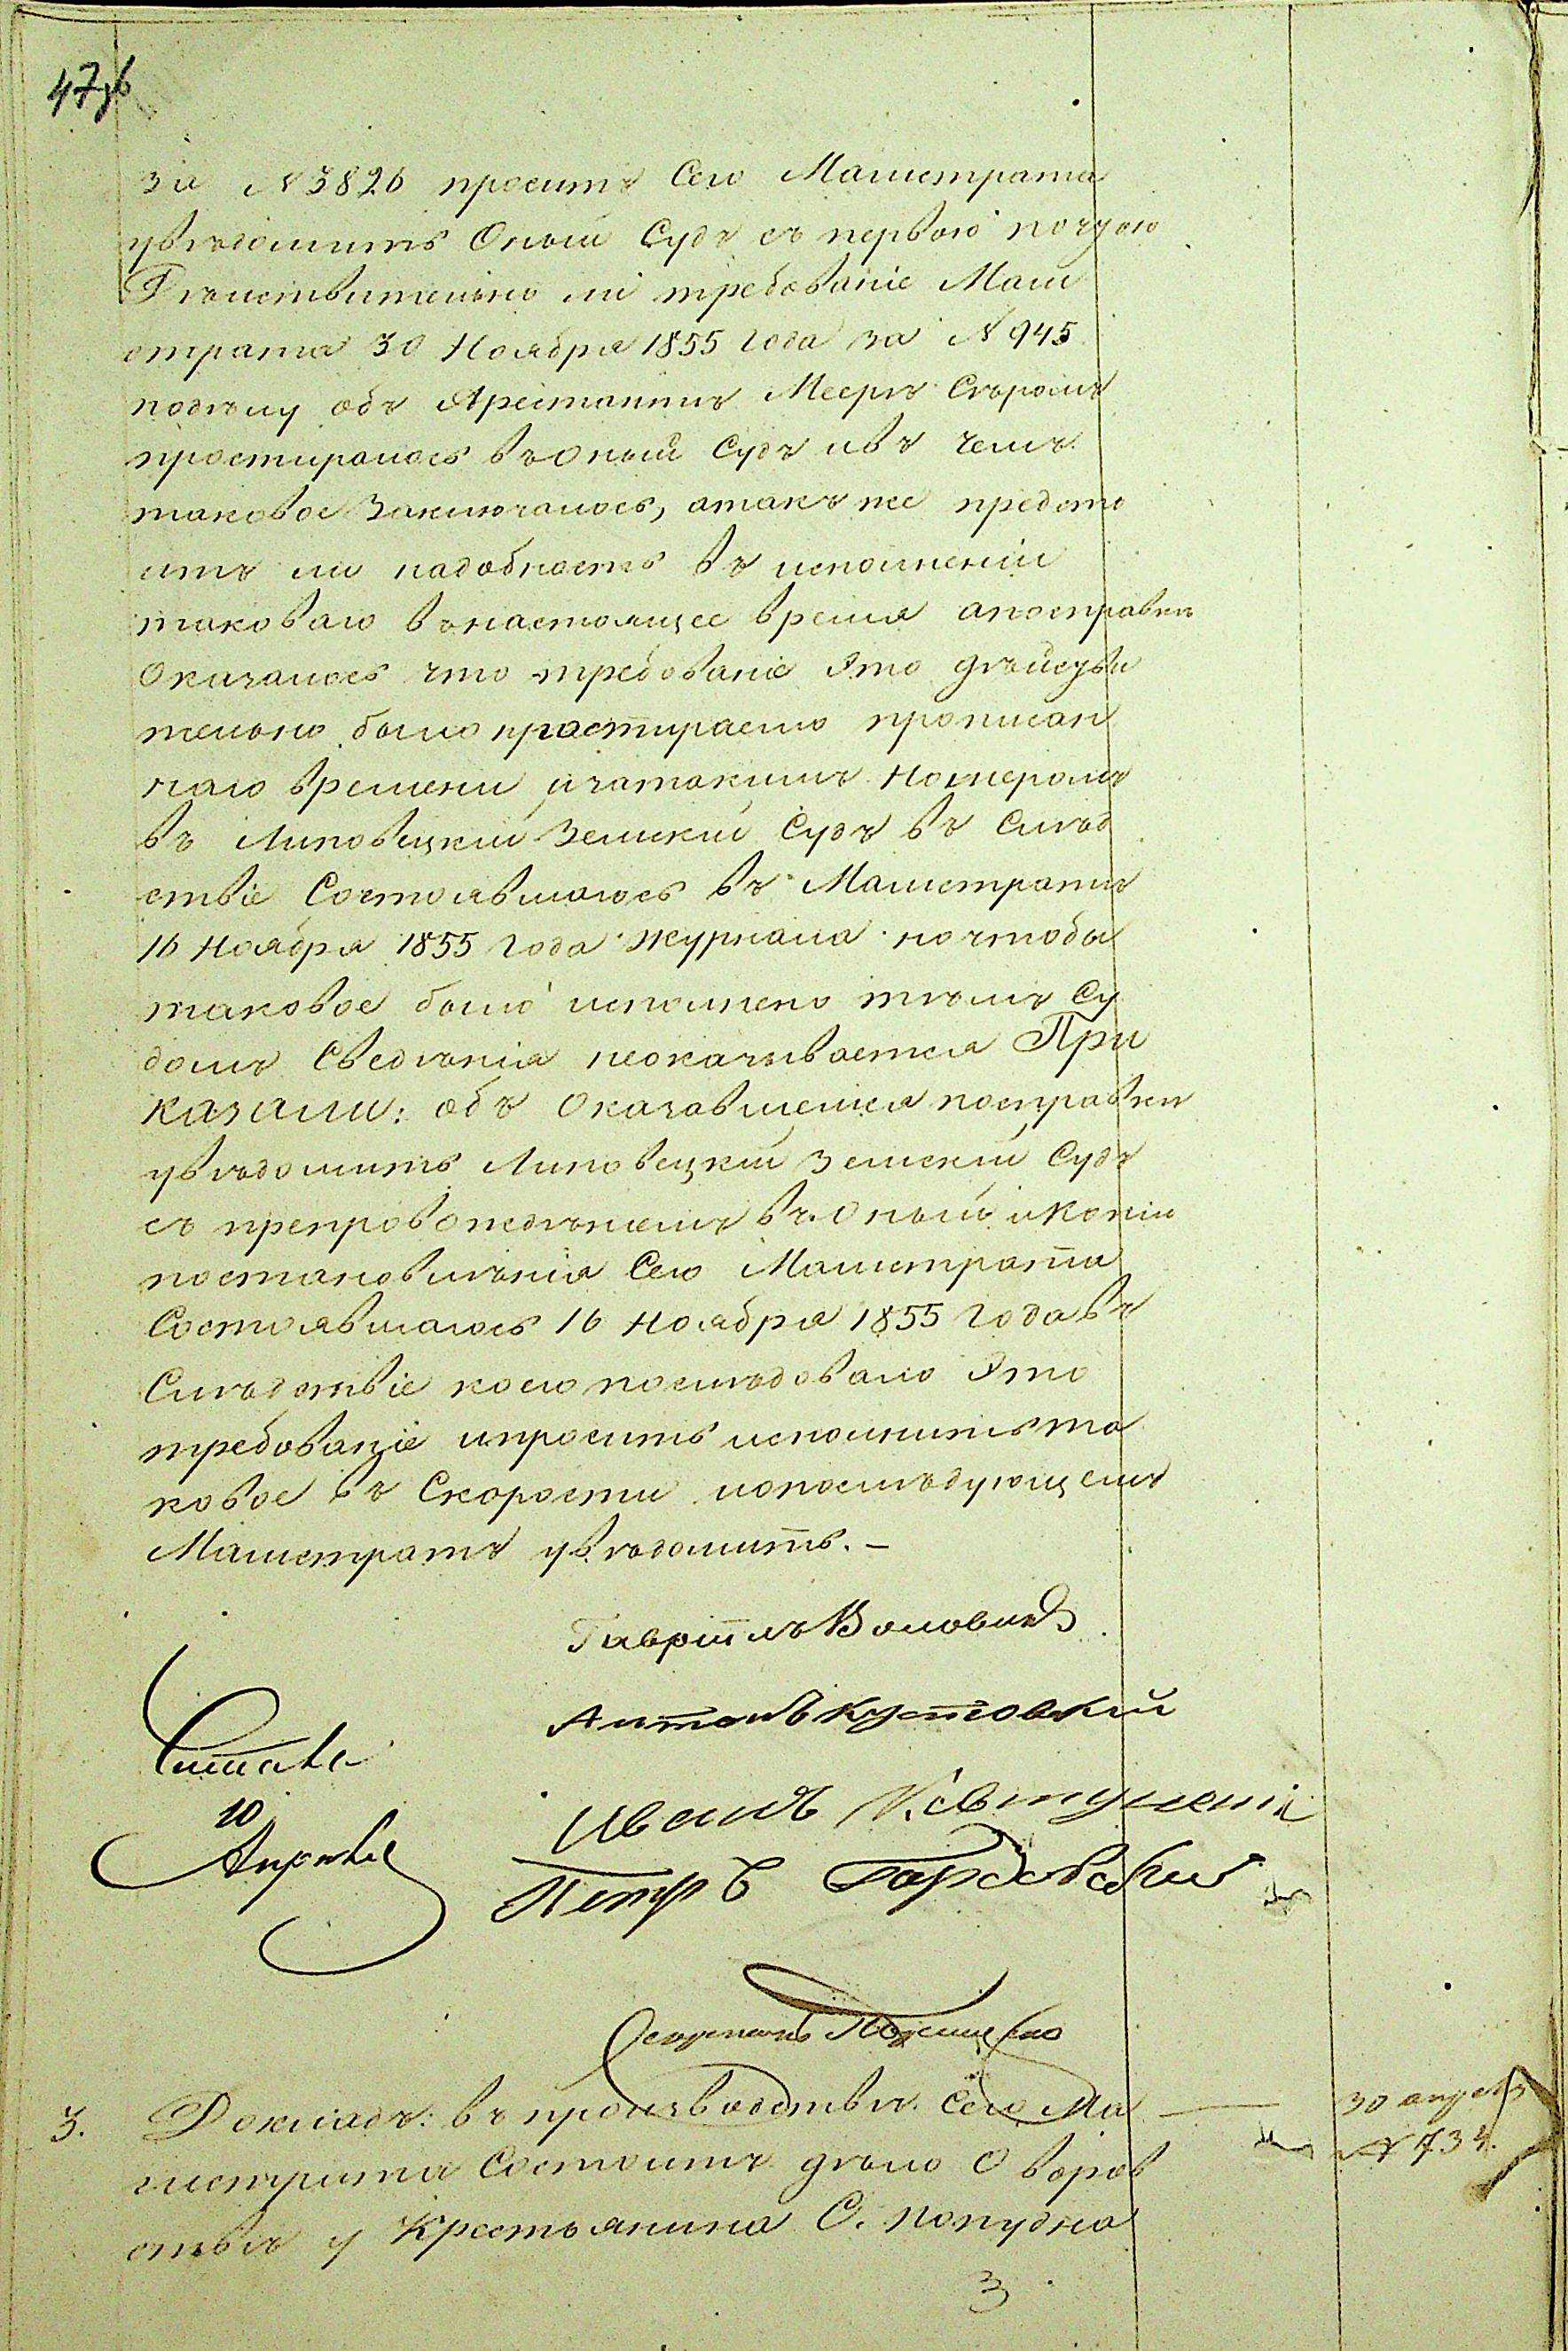 47об
за N 3826 проситъ Сего Магистрата
увѣдомить Оный Судъ съ первою почтою
Дѣйствительно ли требованіе Маги
страта 30 Ноября 1855 года за N 945
подѣлу объ Арестантѣ Меерѣ Сѣромъ
простиралось въОный Судъ ивъ чемъ
таковое Заключалось, атакъ же предсто
итъ ли надобность въ исполненіи
таковаго внастоящее время апосправкѣ
Оказалось что требованіе Это дѣйстви
тельно было простираемо прописан
наго времени изатакимъ Номеромъ
въ Липовецкій Земскій Судъ въ Слѣд
ствіе Состоявшагось въ Магистратѣ
16 Ноября 1855 года журнала ночтобы
таковое было исполнено тѣмъ Су
домъ Сведѣнія неоказывается При
казали: объ Оказавшемся посправкѣ
увѣдомить Липовецкій Земскій Судъ
съ препровождѣніемъ въОный икопіи
постановлѣнія Сего Магистрата
Состоявшагось 16 Ноября 1855 года въ
Слѣдствіе коего послѣдовало Это
требованіе ипросить исполнить та
ковое въ Скорости ипослѣдующемъ
Магистратъ увѣдомить. –
Гавріилъ Воловикъ
Антонъ Кутовскій
Иванъ
Петръ
Читалъ
10
Апрѣля
Секретарь
3. Докладъ: въ производствѣ Сего Ма
гистрата Состоитъ дѣло О воров
ствѣ у Крестьянина С. Попудна
30 апрѣля
N 734.
3